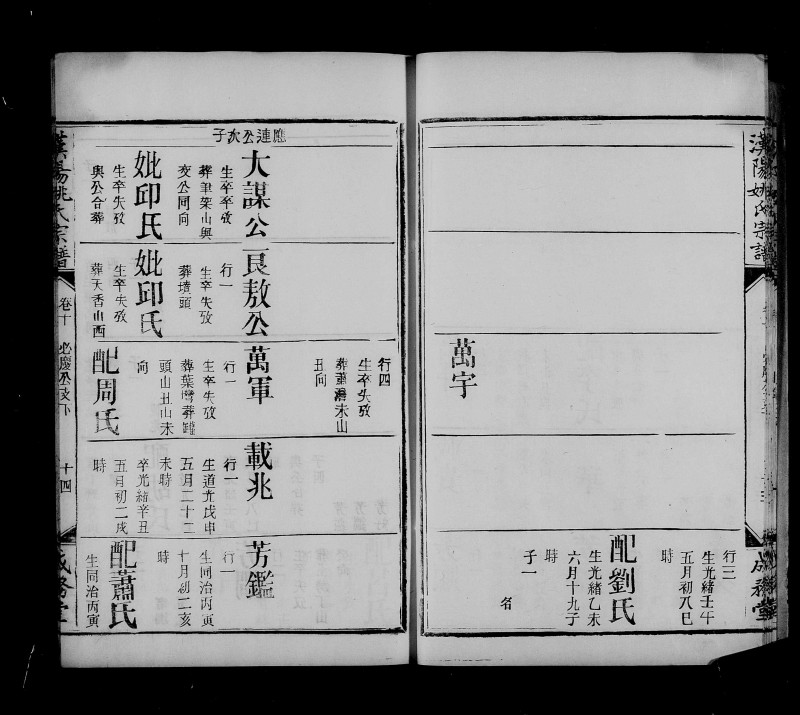 漢陽姚氏宗譜
成務堂
萬宇
行三
生光緒壬午
五月初八巳
時
配劉氏
生光緒乙未
六月十九子
時
子一
名
行四
生卒失攷
葬蕭灣未山
丑向
應連公次子
大謀公
生卒卒攷
葬筆架山與
交公同向
妣邱氏
生卒失攷
與公合葬
良敖公
行一
生卒失攷
葬墳頭
妣邱氏
生卒失攷
葬天香山西
萬軍
行一
生卒失攷
葬葉灣葬鑵
頭山丑山未
向
配周氏
載兆
行一
生道光戊申
五月二十二
未時
卒光緒辛丑
五月初二戌
時
芳鑑
行一
生同治丙寅
十月初二亥
時
配蕭氏
生同治丙寅
漢陽姚氏宗譜
卷十
必慶公支下
十四
成務堂